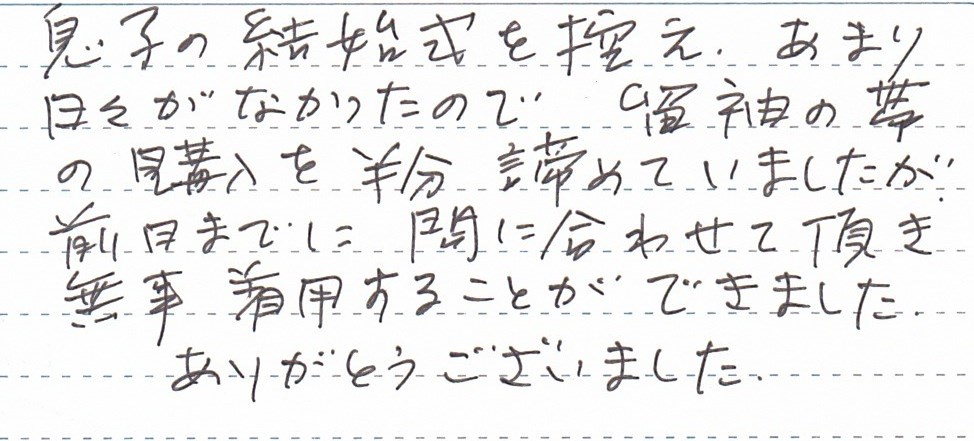 息子の結婚式を控え、あまり
日々がなかったので 留袖の帯
の購入を半分 諦めていましたが、
前日までに 間に合わせて頂き
無事 着用することができました.
ありがとうございました.